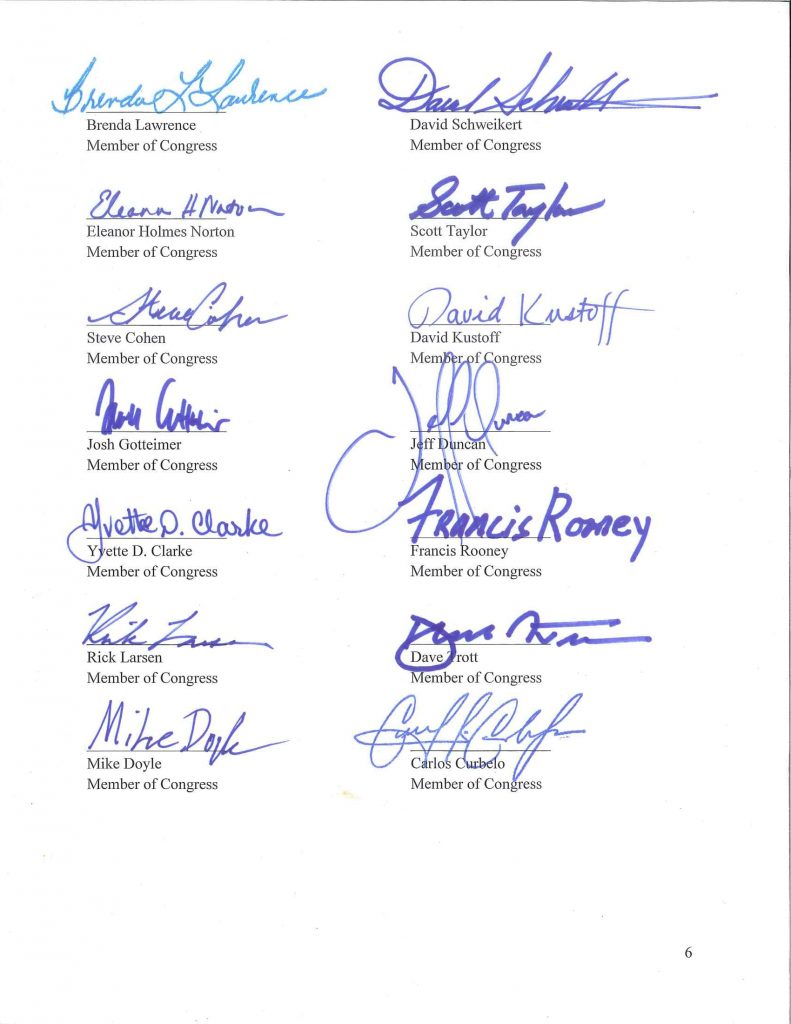 Brenda L Lawrence
Brenda Lawrence
Member of Congress
David Schweikert
Member of Congress
Eleanor H Norton
Eleanor Holmes Norton
Member of Congress
Scott Taylor
Scott Taylor
Member of Congress
Steve Cohen
Steve Cohen
Member of Congress
David Kustoff
David Kustoff
Member of Congress
Josh Gotteimer
Member of Congress
Jeff Duncan
Jeff Duncan
Member of Congress
Yvette D. Clarke
Yvette D. Clarke
Member of Congress
Francis Rooney
Francis Rooney
Member of Congress
Rick Larsen
Rick Larsen
Member of Congress
Dave Trott
Member of Congress
Mike Doyle
Mike Doyle
Member of Congress
Carlos Curbelo
Member of Congress
6